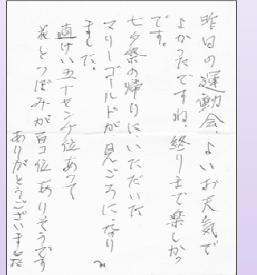 昨日の運動会、よいお天気で
よかったですね 終りまで楽しかっ
です。
七夕祭の帰りにいただいた
マリーゴールドが見ごろになり
ました。
直けい五十センチ位あって
花とつぼみが百コ位ありそうです
ありがとうございました